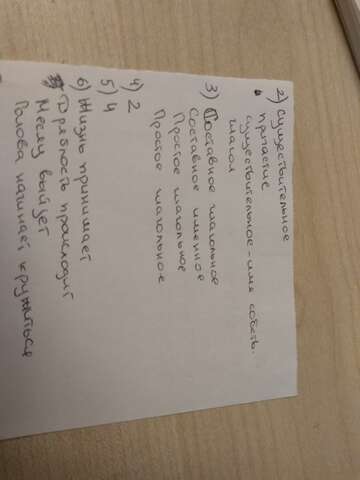 2) Существительное
причастие
существительное - имя собств.
глагол
3) Составное глагольное
Составное именное
Простое глагольное
Простое глагольное
4) 2
5) 4
6) Жизнь принимает
Дряблость происходит
Месяц выйдет
Голова начинает кружиться